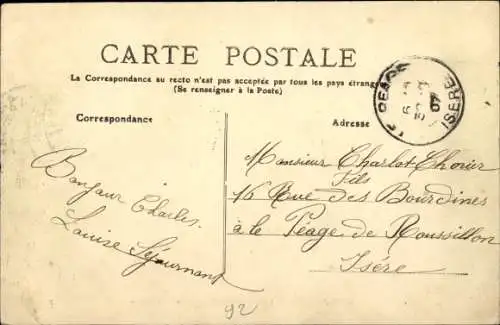 CARTE POSTALE
La Correspondance au recto n'est pas acceptée par tous les pays étrang
(Se renseigner à la Poste)
Correspondance
Adresse
PEAGE
07
ISÈRE
Bonjour Charles.
Louise Séjournant
Monsieur Charlot
Fils
16 Rue des Bourdines
à le Péage de Roussillon
Isère
92